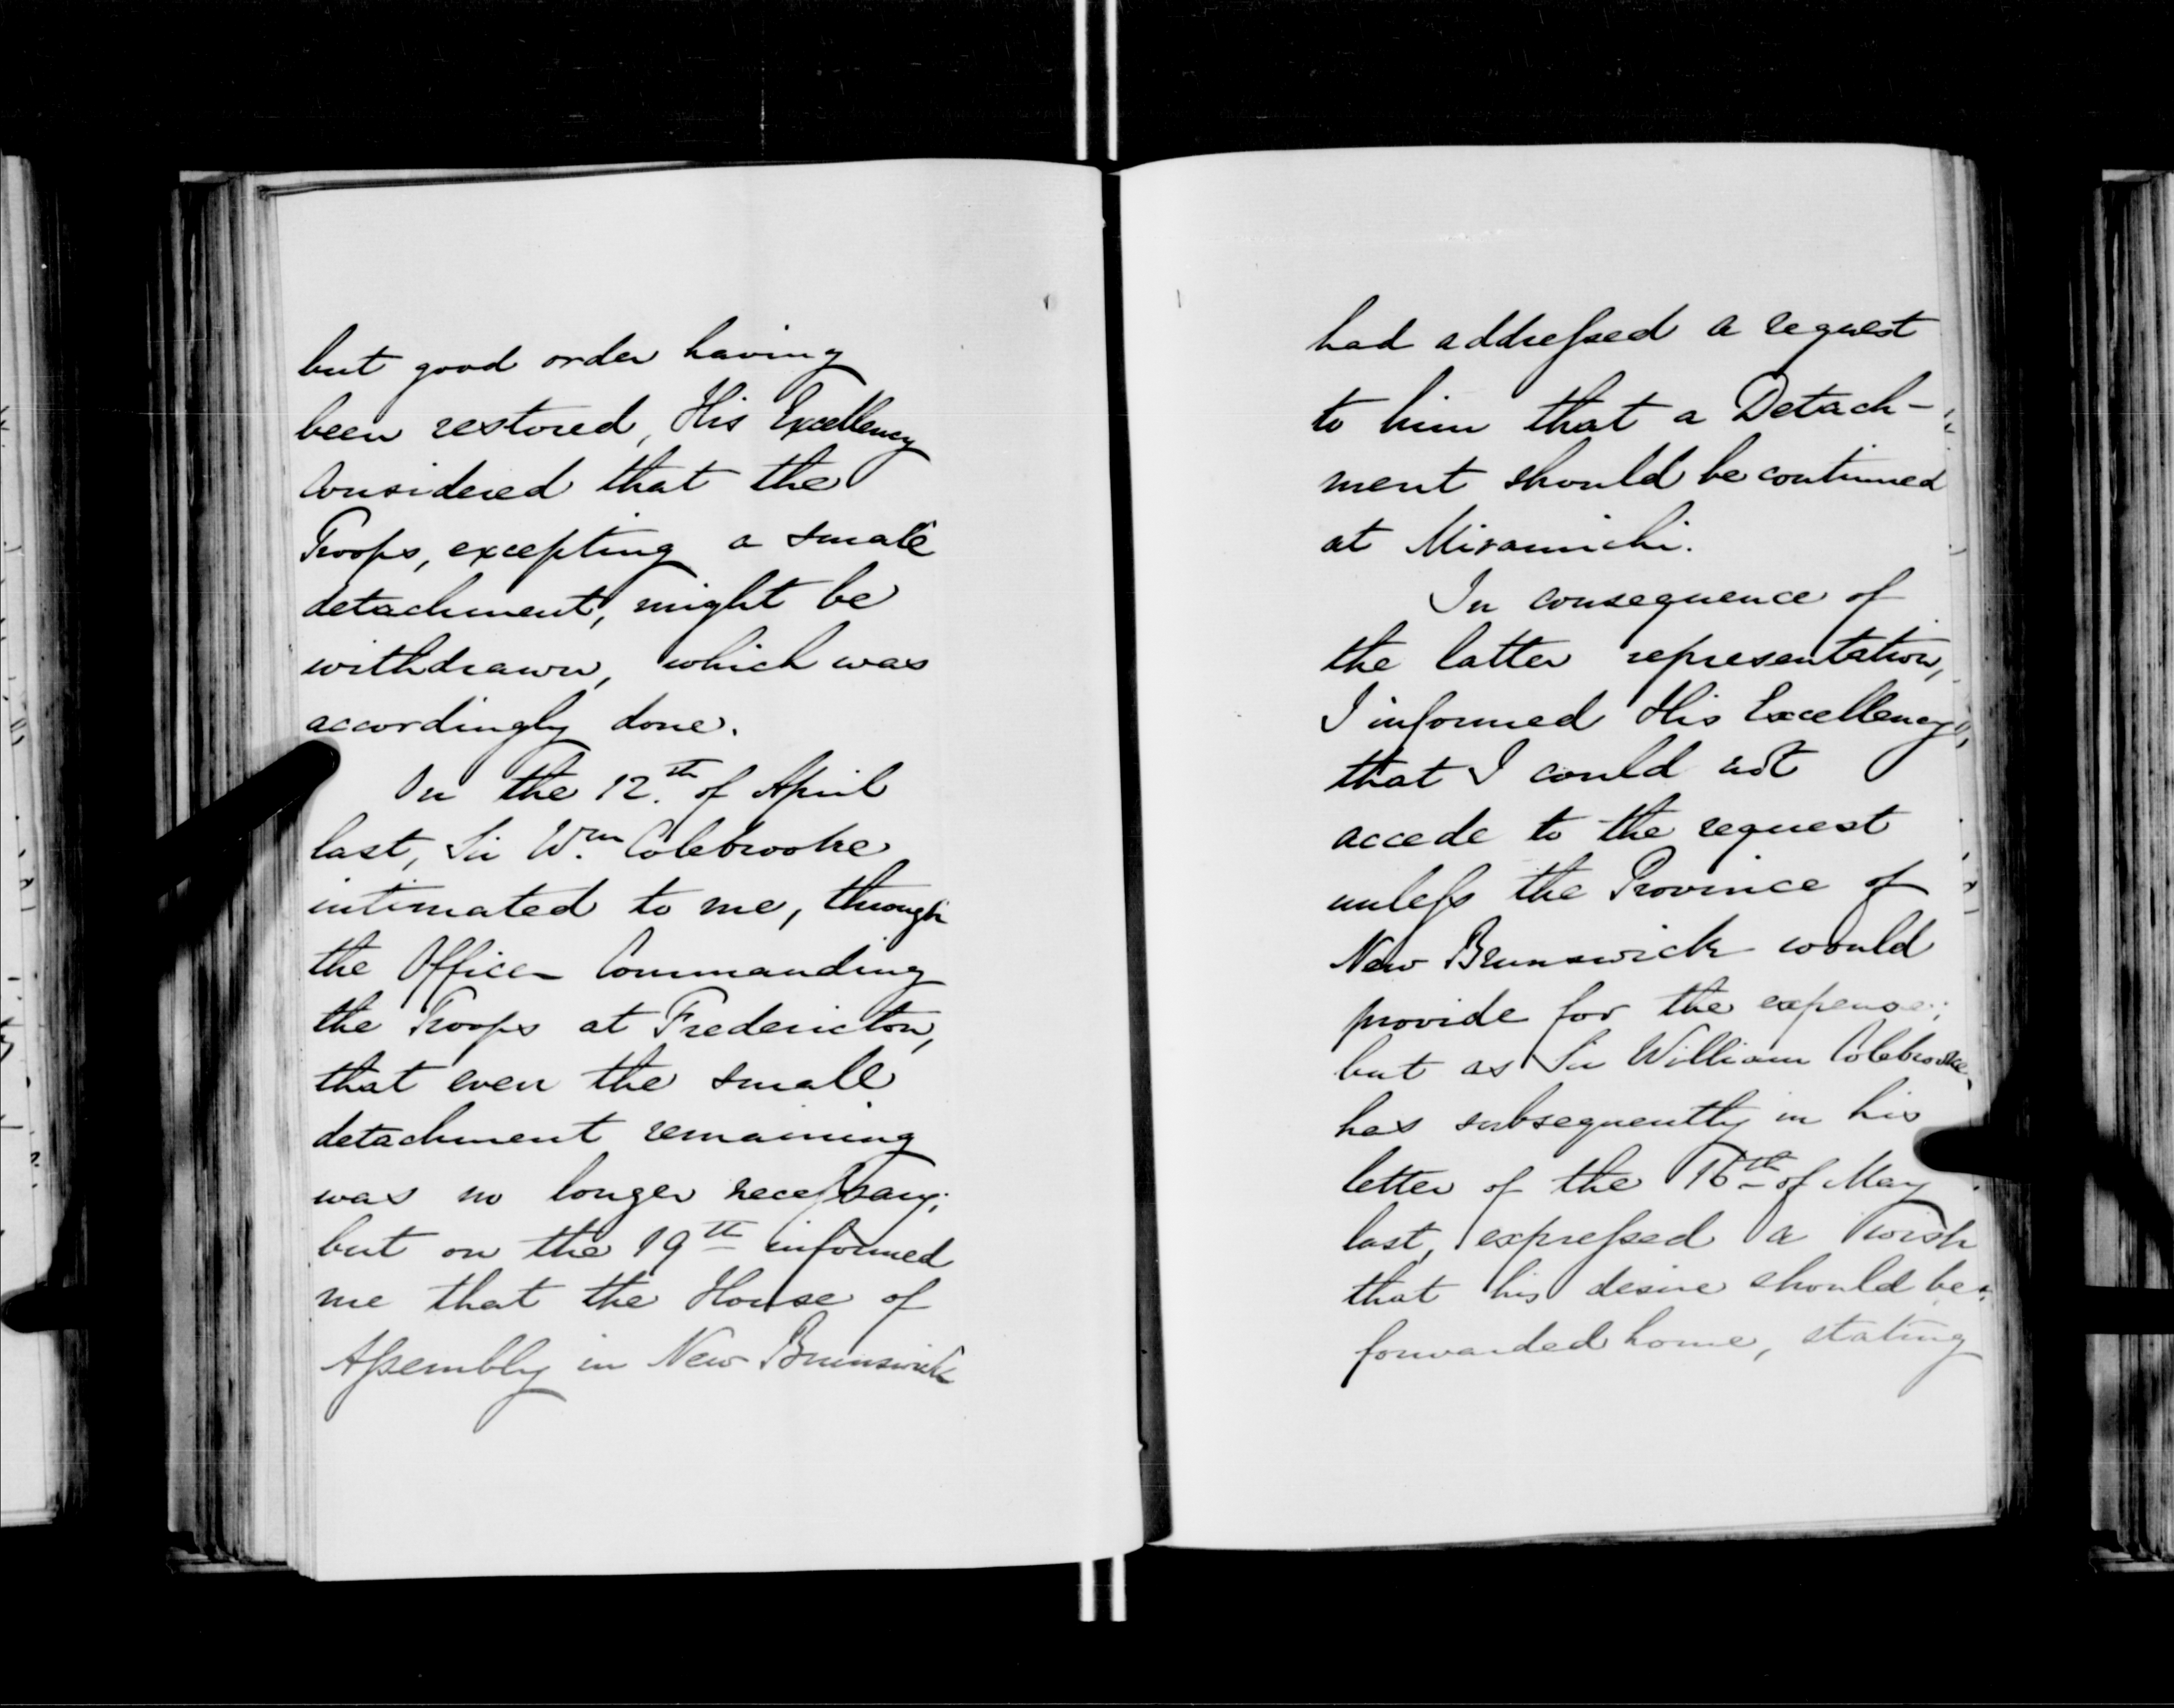 but good order having
been restored, His Excellency
considered that the
Troops, excepting a small
detachment, might be
withdrawn, which was
accordingly done.
On the 12.th of April
last, Sir Wm. Colebrooke
intimated to me, through
the Officer Commanding
the Troops at Fredericton,
that even the small
detachment remaining
was no longer necessary;
but on the 19th informed
me that the House of
Assembly in New Brunswick
had addressed a request
to him that a Detach-
ment should be continued
at Miramichi.
In consequence of
the latter representation,
I informed His Excellency,
that I could not
accede to the request
unless the Province of
New Brunswick would
provide for the expense;
but as Sir William Colebrooke,
has subsequently in his
letter of the 16th of May
last, expressed a wish
that his desire should be
forwarded home, stating